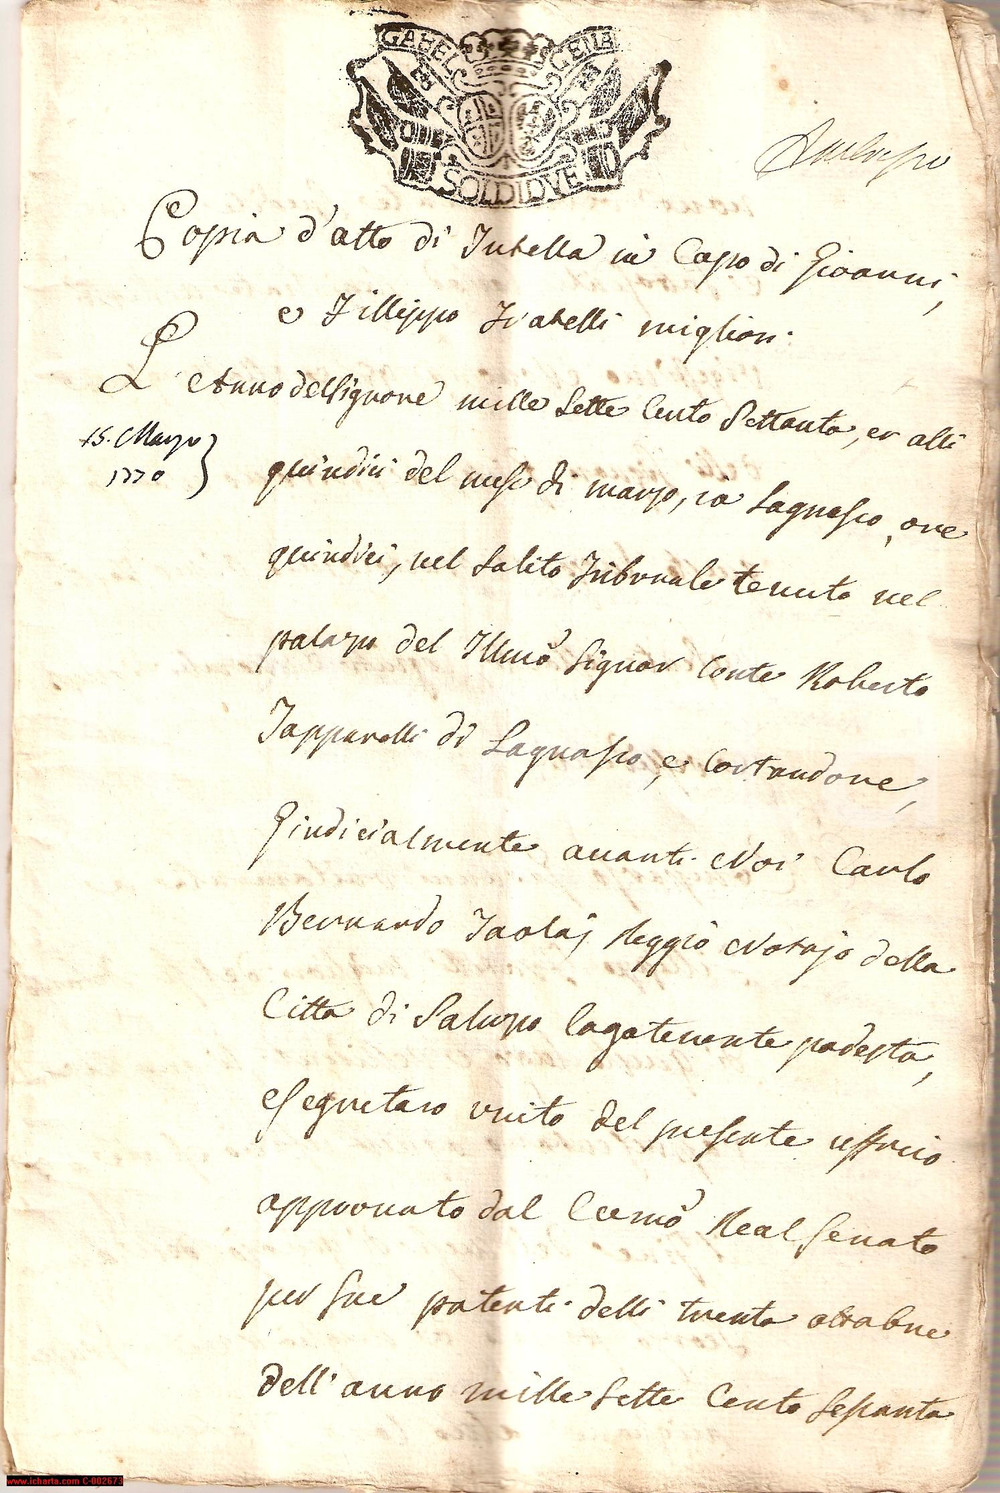 GABEL GENE
SOLDI DVE
Copia d'atto di Tutella in Capo di Gioanni,
e Fillippo Fratelli miglior.
L'Anno del Signore mille Sette Cento Settanta, et alli
15. Marzo
1770
quindici del mese di marzo, in Lagnasco, ore
quindici, nel Solito Tribunale tenuto nel
palazzo del Illmo Signor Conte Roberto
Tapparelli di Lagnasco, e Costandone,
Giudicialmente auanti Noi Carlo
Bernardo Reggio Notajo della
Citta di Saluzzo Logotenente podesta,
e Segretaro unito del presente uffficio
approuato dal Eccmo Real Senato
per sue patenti delli trenta ottobre
dell'anno mille Sette Cento Sessanta
www.icharta.com C-002673